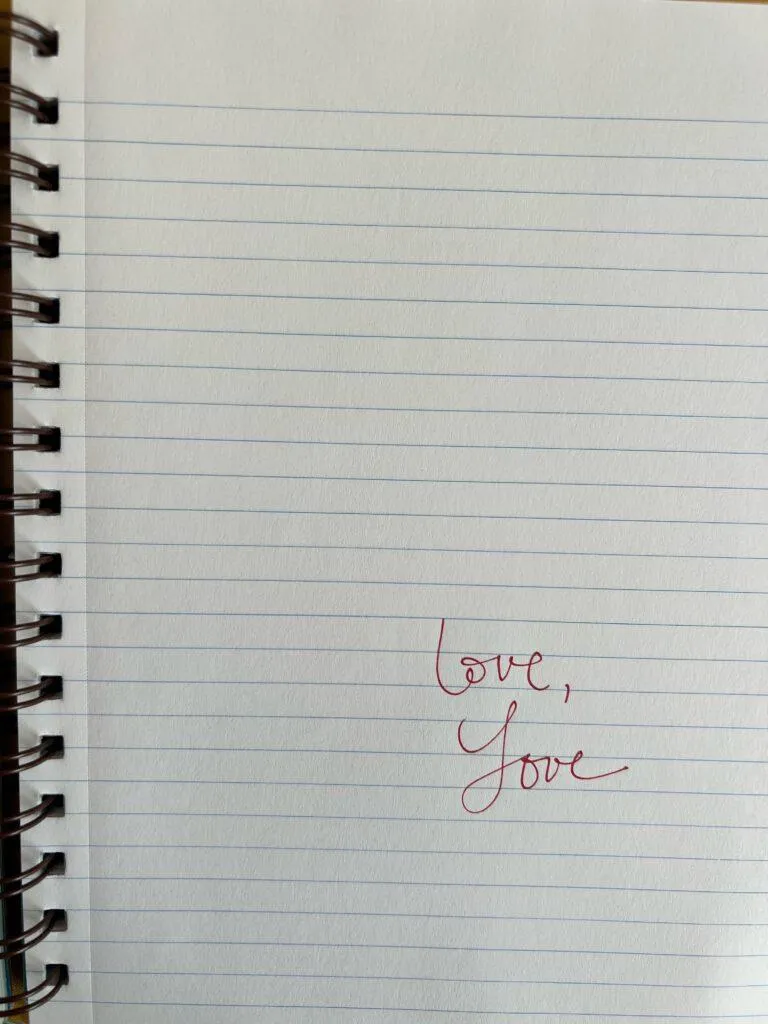 love,
Yove